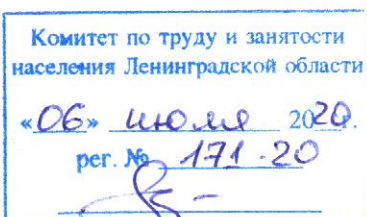 Комитет по труду и занятости
населения Ленинградской области
«06» июля 2020.
рег. № 171-20